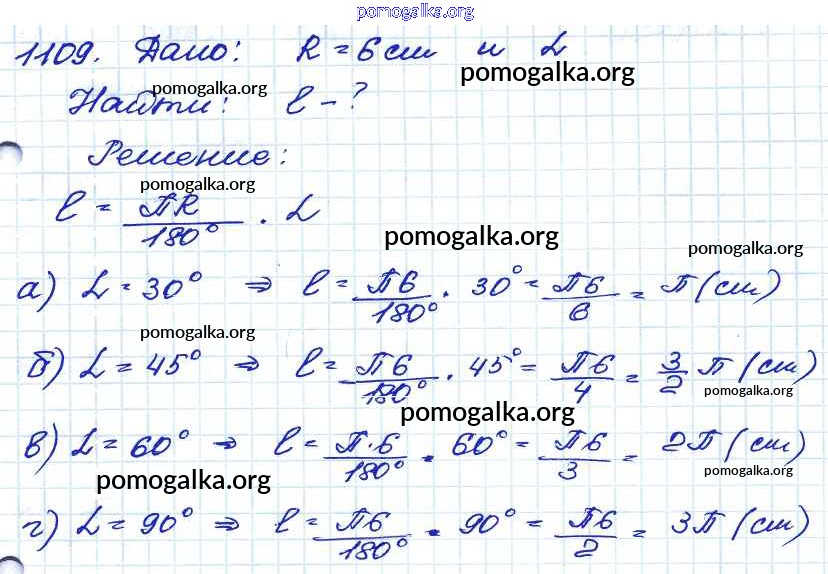 pomogalka.org
1109. Дано: R = 6 см и α
pomogalka.org
Найти: l - ?
pomogalka.org
Решение:
pomogalka.org
l = ПR/180° · α
pomogalka.org
pomogalka.org
а) α = 30° ⇒ l = П6/180° · 30° = П6/6 = П (см)
pomogalka.org
б) α = 45° ⇒ l = П6/180° · 45° = П6/4 = 3/2 П (см)
pomogalka.org
pomogalka.org
в) α = 60° ⇒ l = П·6/180° · 60° = П6/3 = 2П (см)
pomogalka.org
pomogalka.org
г) α = 90° ⇒ l = П6/180° · 90° = П6/2 = 3П (см)